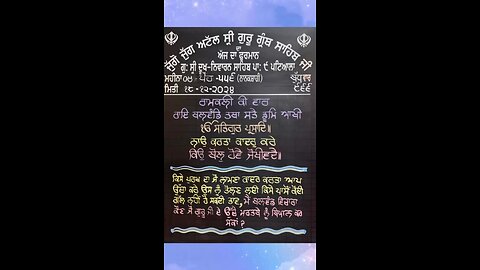 ਜੁਗੋ ਜੁਗ ਅਟੱਲ ਸ੍ਰੀ ਗੁਰੂ ਗ੍ਰੰਥ ਸਾਹਿਬ ਜੀ
ਦਾ
ਅੱਜ ਦਾ ਫੁਰਮਾਨ
ਗੁ: ਸ੍ਰੀ ਦੁਖ-ਨਿਵਾਰਨ ਸਾਹਿਬ ਪਾ: ੯ ਪਟਿਆਲਾ
ਮਹੀਨਾ ੦੪-ਪੋਹ-੫੫੬ (ਨਾਨਕਸ਼ਾਹੀ) ਬੁੱਧਵਾਰ
ਮਿਤੀ ੧੮-੧੨-੨੦੨੪ ੯੬੬
ਰਾਮਕਲੀ ਕੀ ਵਾਰ
ਰਾਇ ਬਲਵੰਡਿ ਤਥਾ ਸਤੈ ਡੂਮਿ ਆਖੀ
ੴ ਸਤਿਗੁਰ ਪ੍ਰਸਾਦਿ॥
ਨਾਉ ਕਰਤਾ ਕਾਦਰੁ ਕਰੇ
ਕਿਉ ਬੋਲੁ ਹੋਵੈ ਜੋਖੀਵਦੈ॥
ਕਿਸੇ ਪੁਰਖ ਦਾ ਜੋ ਨਾਮਣਾ ਕਾਦਰ ਕਰਤਾ ਆਪ
ਉੱਚਾ ਕਰੇ ਉਸ ਨੂੰ ਤੋਲਣ ਲਈ ਕਿਸੇ ਪਾਸੋਂ ਕੋਈ
ਗੱਲ ਨਹੀਂ ਹੋ ਸਕਦੀ ਭਾਵ, ਮੈਂ ਬਲਵੰਡ ਵਿਚਾਰਾ
ਕੌਣ ਹਾਂ ਜੋ ਗੁਰੂ ਜੀ ਦੇ ਉੱਚੇ ਮਰਤਬੇ ਨੂੰ ਬਿਆਨ ਕਰ
ਸਕਾਂ?